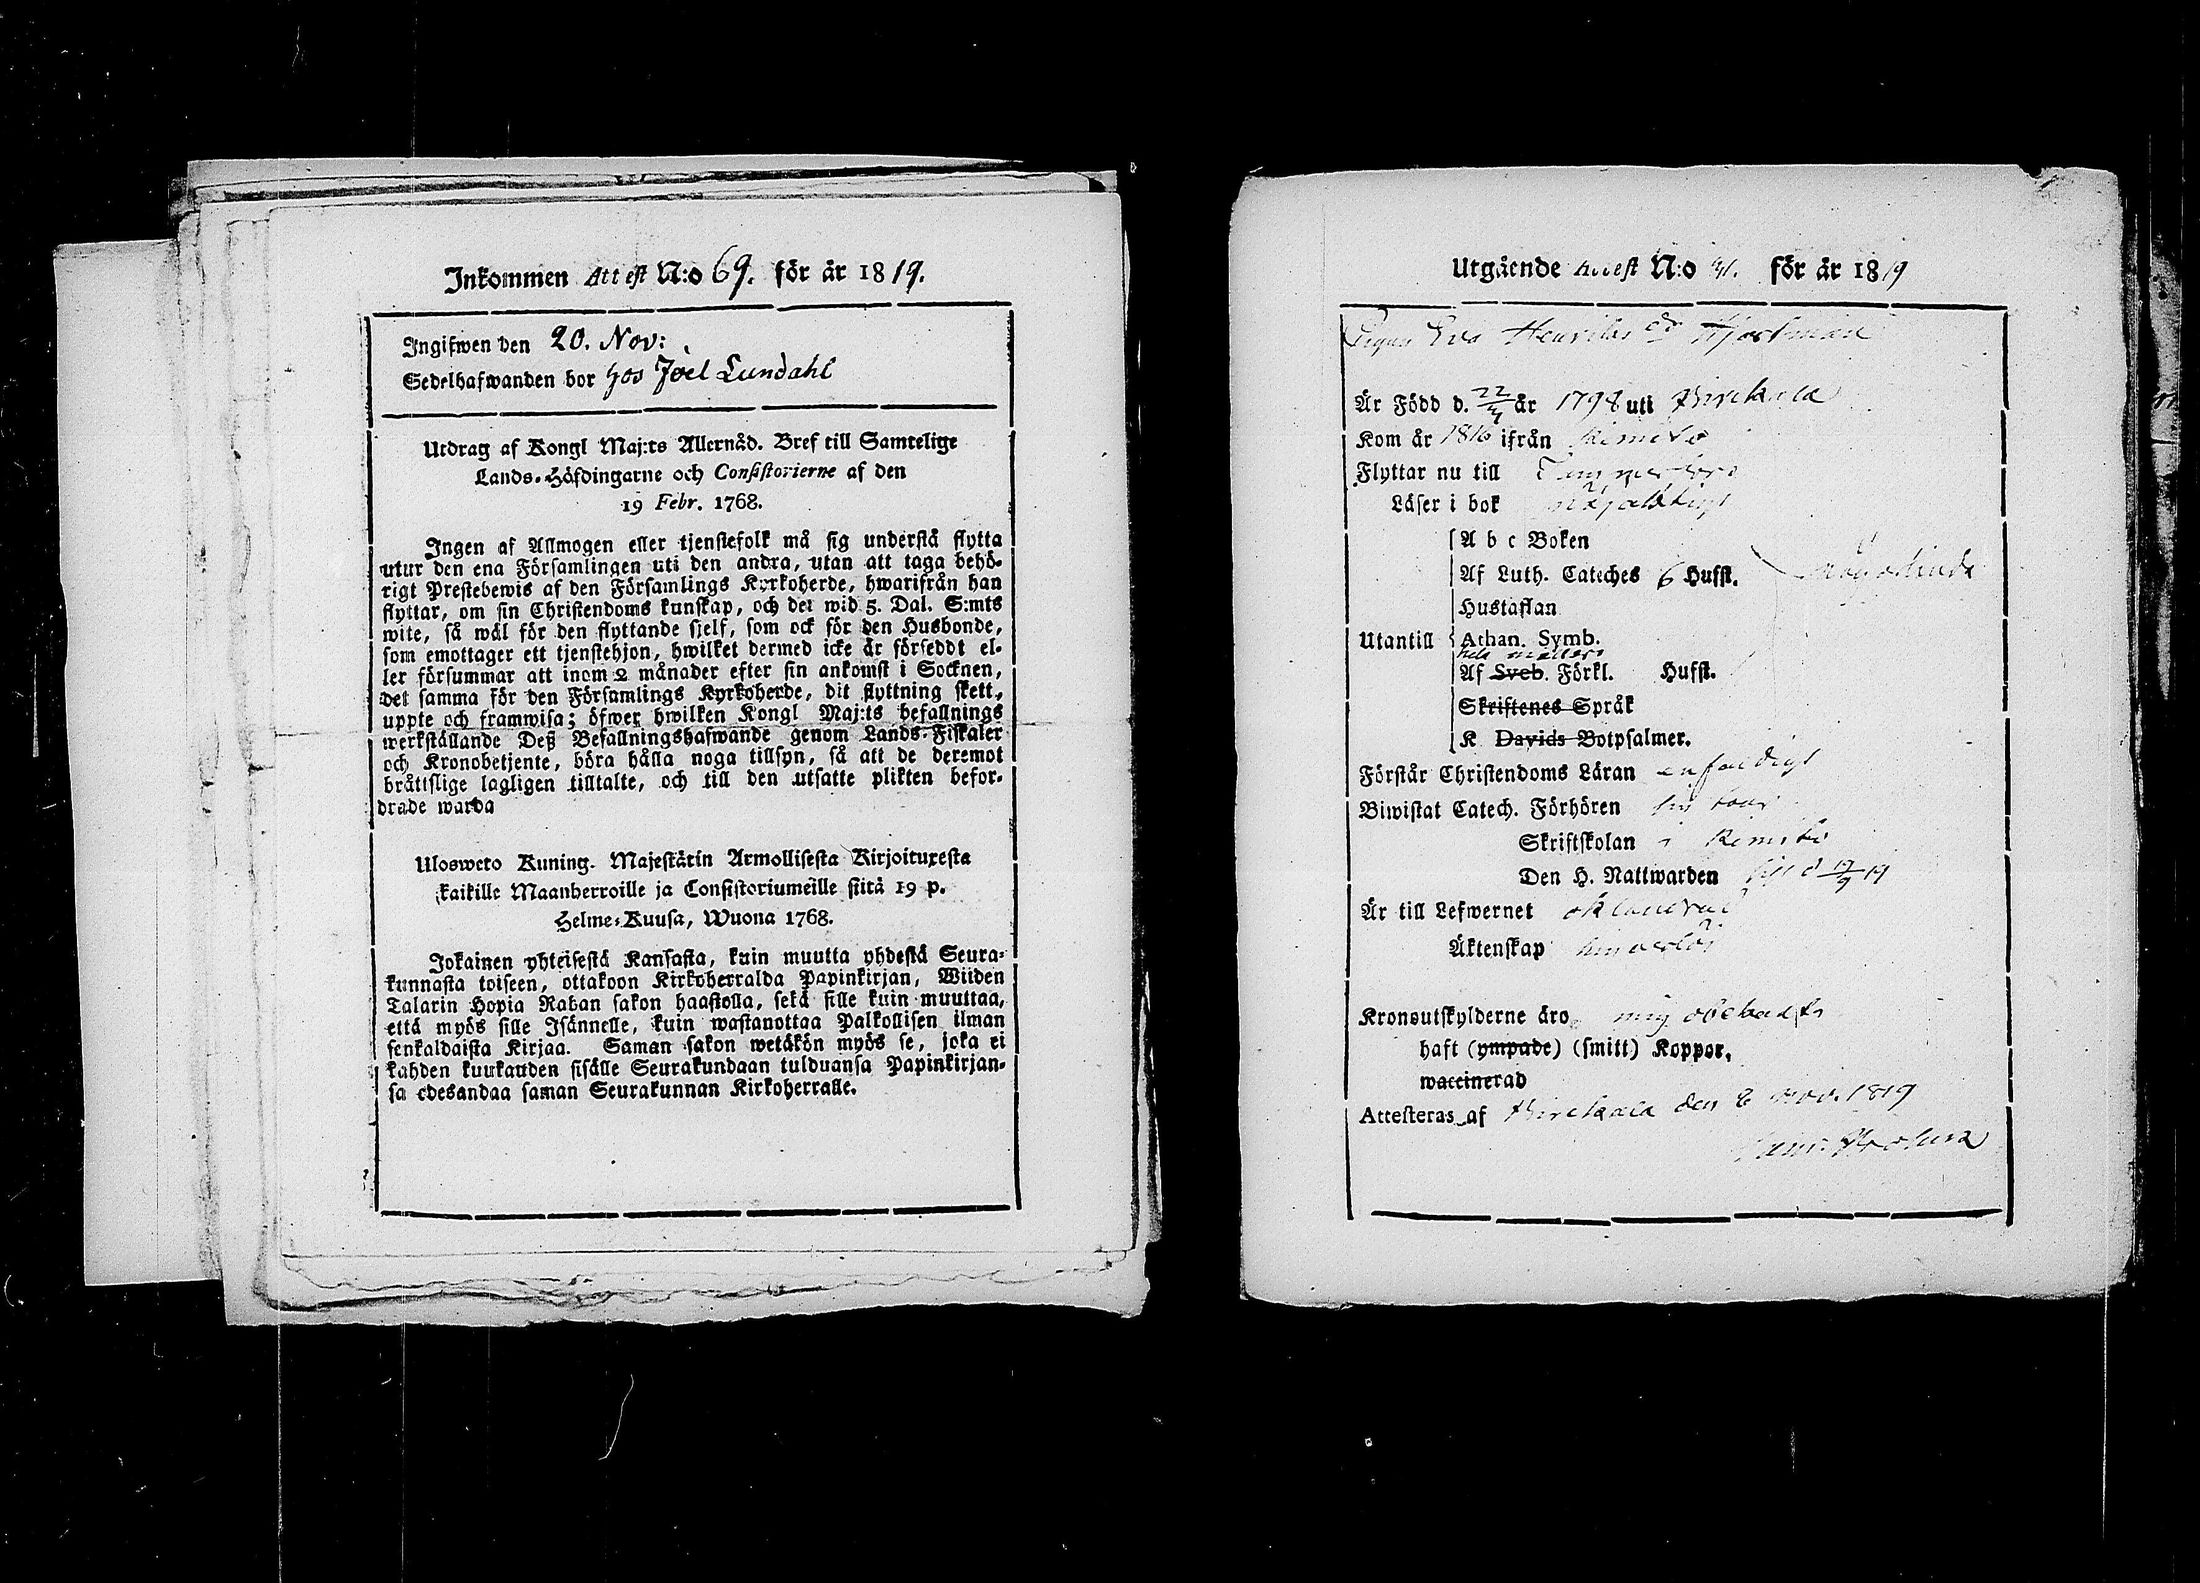 Inkommen Attest N:o 69. för år 1819.
Ingifwen den 20. Nov:
Sedelhafwanden bor hos Joel Lundahl
Utdrag af Kongl Maj:ts Allernåd. Bref till Samtelige
Lands-Höfdingarne och Consistorierne af den
19 Febr. 1768.
Ingen af Allmogen eller tjenstefolk må sig understå flytta
utur den ena Församlingen uti den andra, utan att taga behö-
rigt Prestebewis af den Församlings Kyrkoherde, hwarifrån han
flyttar, om sin Christendoms kunskap, och det wid 5. Dal. S:mts
wite, så wäl för den flyttande sjelf, som ock för den Husbonde,
som emottager ett tjenstehjon, hwilket dermed icke är förseddt el-
ler försummar att inom 2 månader efter sin ankomst i Socknen,
det samma för den Församlings Kyrkoherde, dit flyttning skett,
uppte och framwisa; öfwer hwilken Kongl Maj:ts befallnings
werkställande Deß Befallningshafwande genom Lands-Fiskaler
och Kronobetjente, böra hålla noga tillsyn, så att de deremot
bråttslige lagligen tilltalte, och till den utsatte plikten befor-
drade warda
Uloswcto Kuning. Majestätin Armollisesta Kirjoituxesta
kaikille Maanherroille ja Consistoriumeille siitä 19 p.
Helme-Kuusa, Wuona 1768.
Jokainen yhteisestä Kansasta, kuin muutta yhdestä Seura-
kunnasta toiseen, ottakoon Kirkoherralda Papinkirjan, Wiiden
Talarin Hopia Rahan sakon haastolla, sekä sille kuin muuttaa,
että myös sille Isännelle, kuin wastanottaa Palkollisen ilman
senkaldaista Kirjaa. Saman sakon wetäkön myös se, joka ei
kahden kuukauden sisälle Seurakundaan tulduansa Papinkirjan-
sa edesandaa saman Seurakunnan Kirkoherralle.
Utgående Attest N:o 41. för år 1819
Pigan Eva Henriks dr
Är Född d. 22 år 1798 uti Birckala
Kom år 1816 ifrån Kimito
Flyttar nu till Tammerfors
Läser i bok
A b c Boken
Af Luth. Cateches 6 Hufst.
Hustaflan
Utantill Athan. Symb.
Af Sveb. Förkl. Hufst.
Skriftenes Språk
K Davids Botpsalmer.
Förstår Christendoms Läran enfaldigt
Biwistat Catech. Förhören
Skriftskolan i Kimito
Den H. Nattwarden
Är till Lefwernet oklandrad
Äktenskap hinderlös
Kronoutskylderne äro mig obekante
haft (ympade) (smitt) Koppor.
waccinerad
Attesteras af Birckala den 8 Nov. 1819